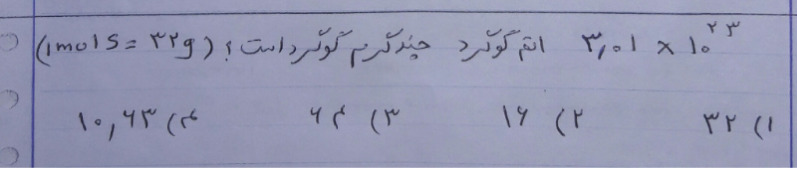 ۳,۰۱ × ۱۰^۲۳ اتم گوگرد چند گرم گوگرد است؟ (1mol S = ۳۲g)
۱) ۳۲ ۲) ۱۶ ۳) ۶۴ ۴) ۱۰,۶۳